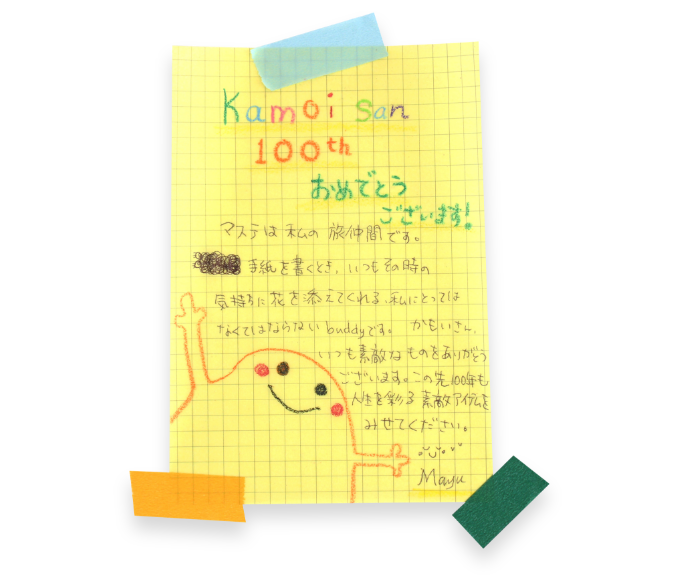 Kamoi San
100th
おめでとう
ございます!
マステは私の旅仲間です。
手紙を書くとき、いつもその時の
気持ちに花を添えてくれる、私にとっては
なくてはならないbuddyです。 かもいさん、
いつも素敵なものをありがとう
ございます。この先100年も
人生を彩る素敵アイテムを
みせてください。
Mayu